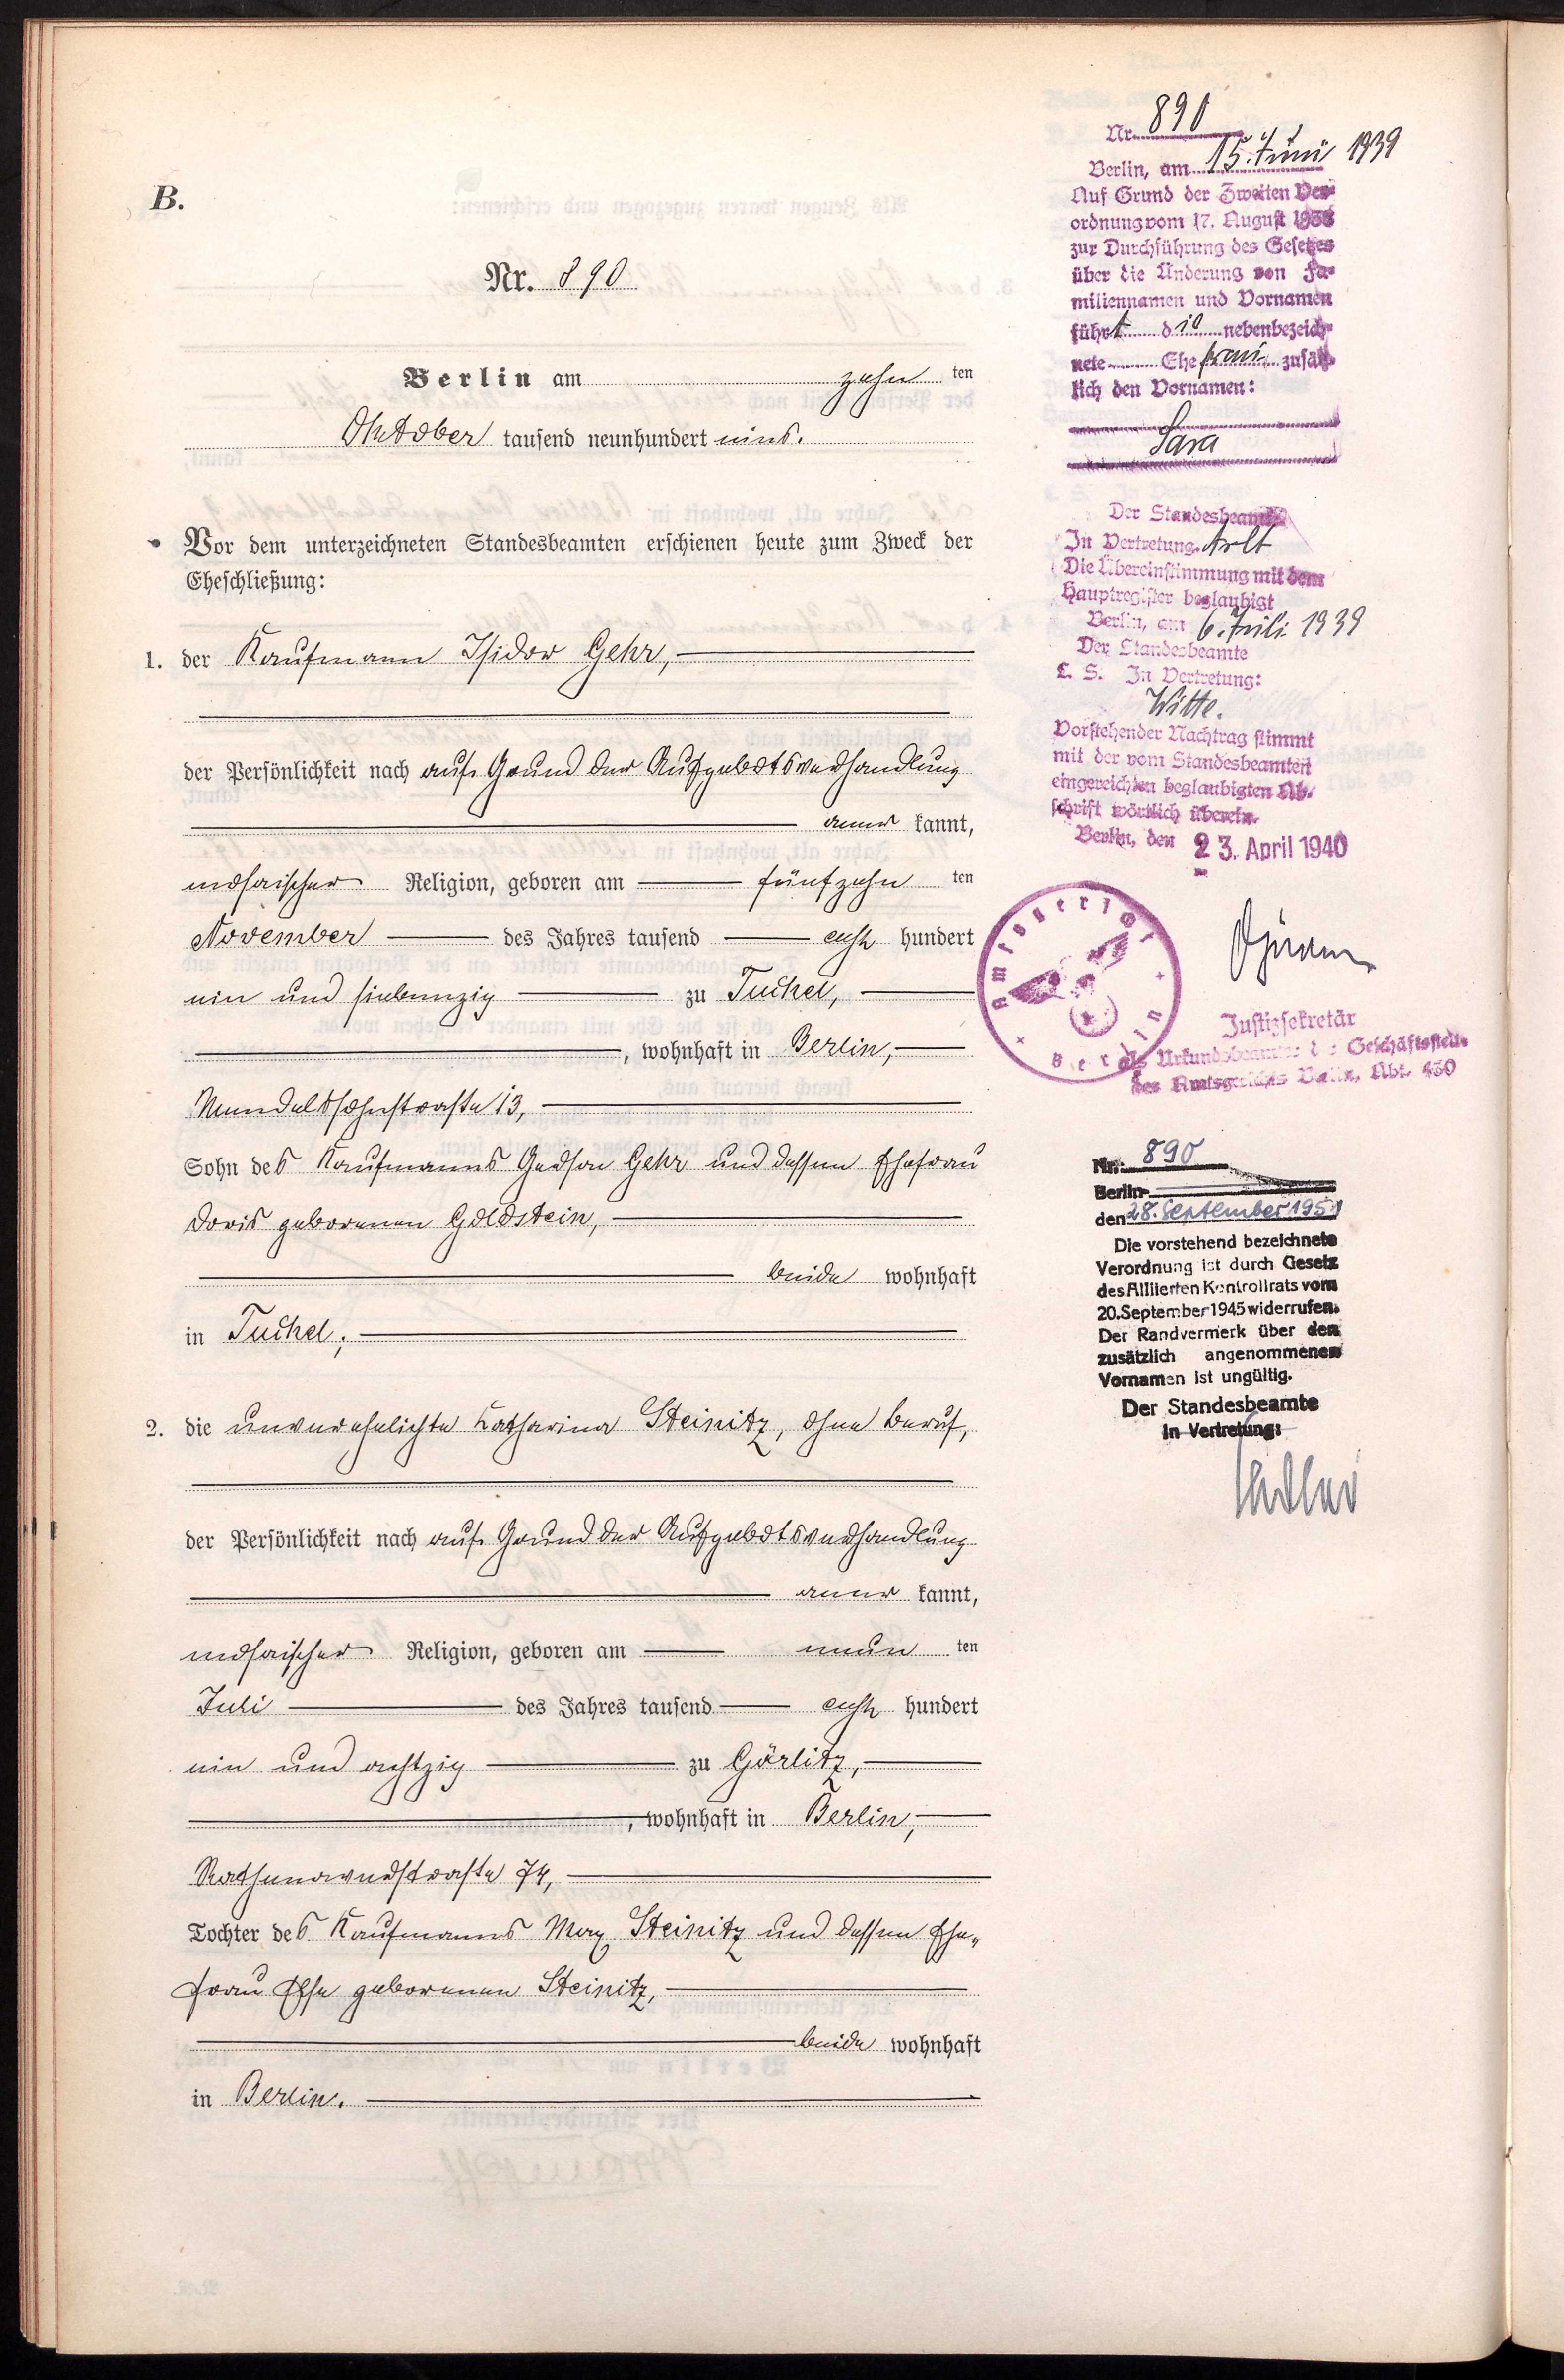 B.
Nr. 890
Berlin am zehn ten
Oktober tausend neunhundert eins.
Vor dem unterzeichneten Standesbeamten erschienen heute zum Zweck der
Eheschließung:
1. der Kaufmann Isidor Gehr,
der Persönlichkeit nach auf Grund der Aufgebotsverhandlung
aner kannt,
mosaischer Religion, geboren am fünfzehn ten
November des Jahres tausend acht hundert
ein und siebenzig zu Tuchel,
, wohnhaft in Berlin,
Mendelssohnstraße 13,
Sohn des Kaufmanns Gedson Gehr und dessen Ehefrau
Doris geborenen Goldstein,
beide wohnhaft
in Tuchel;
2. die unverehelichte Katharina Steinitz, ohne Beruf,
der Persönlichkeit nach auf Grund der Aufgebotsverhandlung
aner kannt,
mosaischer Religion, geboren am neun ten
Juli des Jahres tausend acht hundert
ein und achtzig zu Görlitz,
, wohnhaft in Berlin,
Rathenowerstraße 74,
Tochter des Kaufmanns Max Steinitz und dessen Ehe-
frau Else geborenen Steinitz,
beide wohnhaft
in Berlin.
Nr. 890
Berlin, am 15. Juni 1939
Auf Grund der Zweiten Ver-
ordnung vom 17. August 1938
zur Durchführung des Gesetzes
über die Änderung von Fa-
miliennamen und Vornamen
führt die nebenbezeich-
nete Ehefrau zusätz-
lich den Vornamen:
Sara
Der Standesbeamte
In Vertretung. Arlt
Die Übereinstimmung mit dem
Hauptregister beglaubigt
Berlin, am 6. Juli 1939
Der Standesbeamte
L. S. In Vertretung:
Witte.
Vorstehender Nachtrag stimmt
mit der vom Standesbeamten
eingereichten beglaubigten Ab-
schrift wörtlich überein.
Berlin, den 23. April 1940
Amtsgericht Berlin
Justizsekretär
als Urkundsbeamter der Geschäftsstelle
des Amtsgerichts Berlin, Abt. 450
Nr. 890
Berlin
den 28. September 1951
Die vorstehend bezeichnete
Verordnung ist durch Gesetz
des Alliierten Kontrollrats vom
20. September 1945 widerrufen.
Der Randvermerk über den
zusätzlich angenommenen
Vornamen ist ungültig.
Der Standesbeamte
In Vertretung: